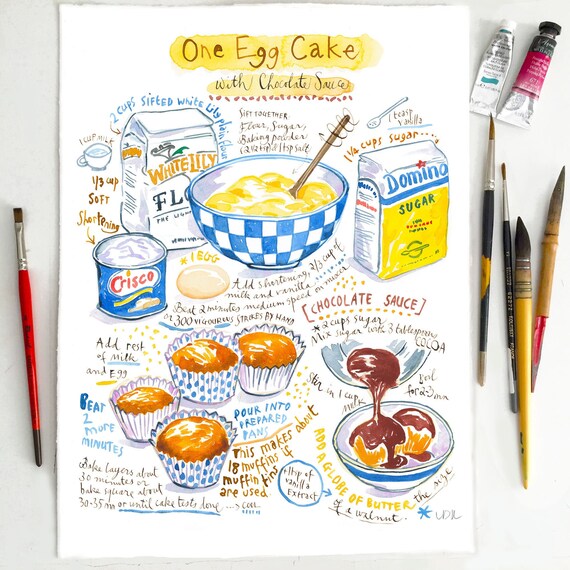 One Egg Cake
with Chocolate Sauce
2 cups sifted White Lily plain flour
1 cup milk
1/3 cup
soft
shortening
WHITE LILY
FLO
SIFT TOGETHER:
Flour, Sugar,
Baking powder
1 teasp
vanilla
1 1/4 cups sugar
Domino
SUGAR
Crisco
* 1 EGG
Add shortening, 2/3 cup of
milk and vanilla
Beat 2 minutes medium speed on mixer
or 300 VIGOUROUS STROKES BY HAND
[CHOCOLATE SAUCE]
* 2 cups sugar
Mix sugar with 3 tablespoons
COCOA
Add rest
of milk
and EGG
Stir in 1 cup
milk
Boil
for 2-3 min
BEAT
2
MORE
MINUTES
POUR INTO
PREPARED
PANS
This makes about
18 muffins if
muffin tins
are used
Bake layers about
30 minutes or
bake square about
30-35 m or until cake tests done ---> cool
vanilla
Extract
ADD A GLOBE OF BUTTER the size
of a walnut.